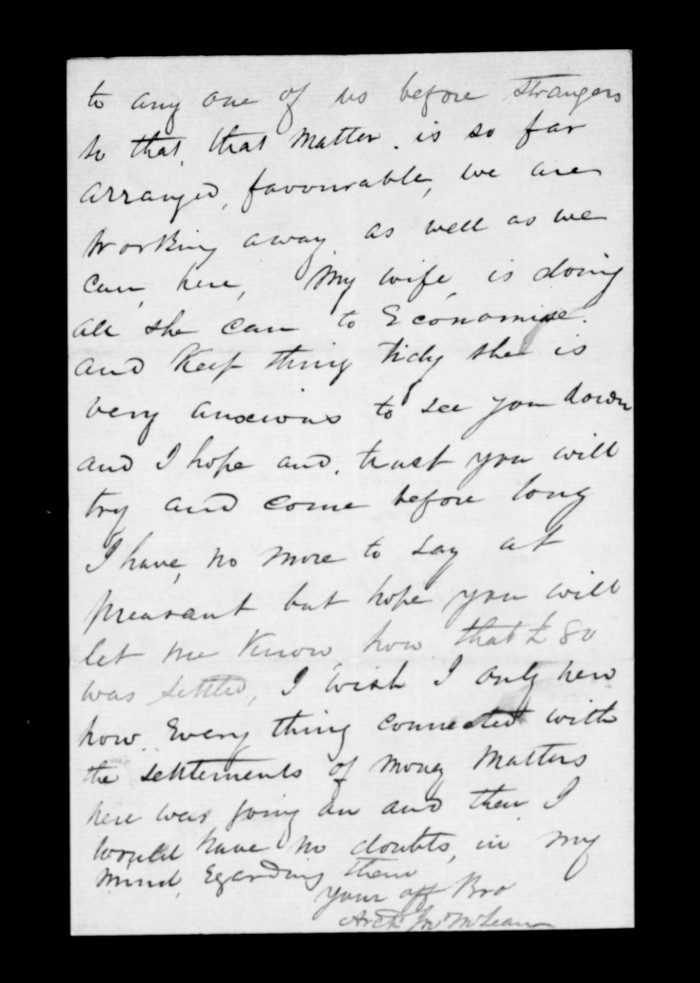 to any one of us before strangers
so that, that matter. is so far
arranged, favourable, we are
working away as well as we
can, here, My wife, is doing
all she can to Economise.
and Keep thing tidy she is
very anxious to see you down
and I hope and. trust you will
try and come before long
I have, no more to say at
preasant but hope you will
let me Know how that £80
was settled, I wish I only new
how. Every thing connected with
the settlements of money matters
here was going an and then I
would have no doubts, in my
mind, Egarding them
your aff Bro
Archd Jno McLean